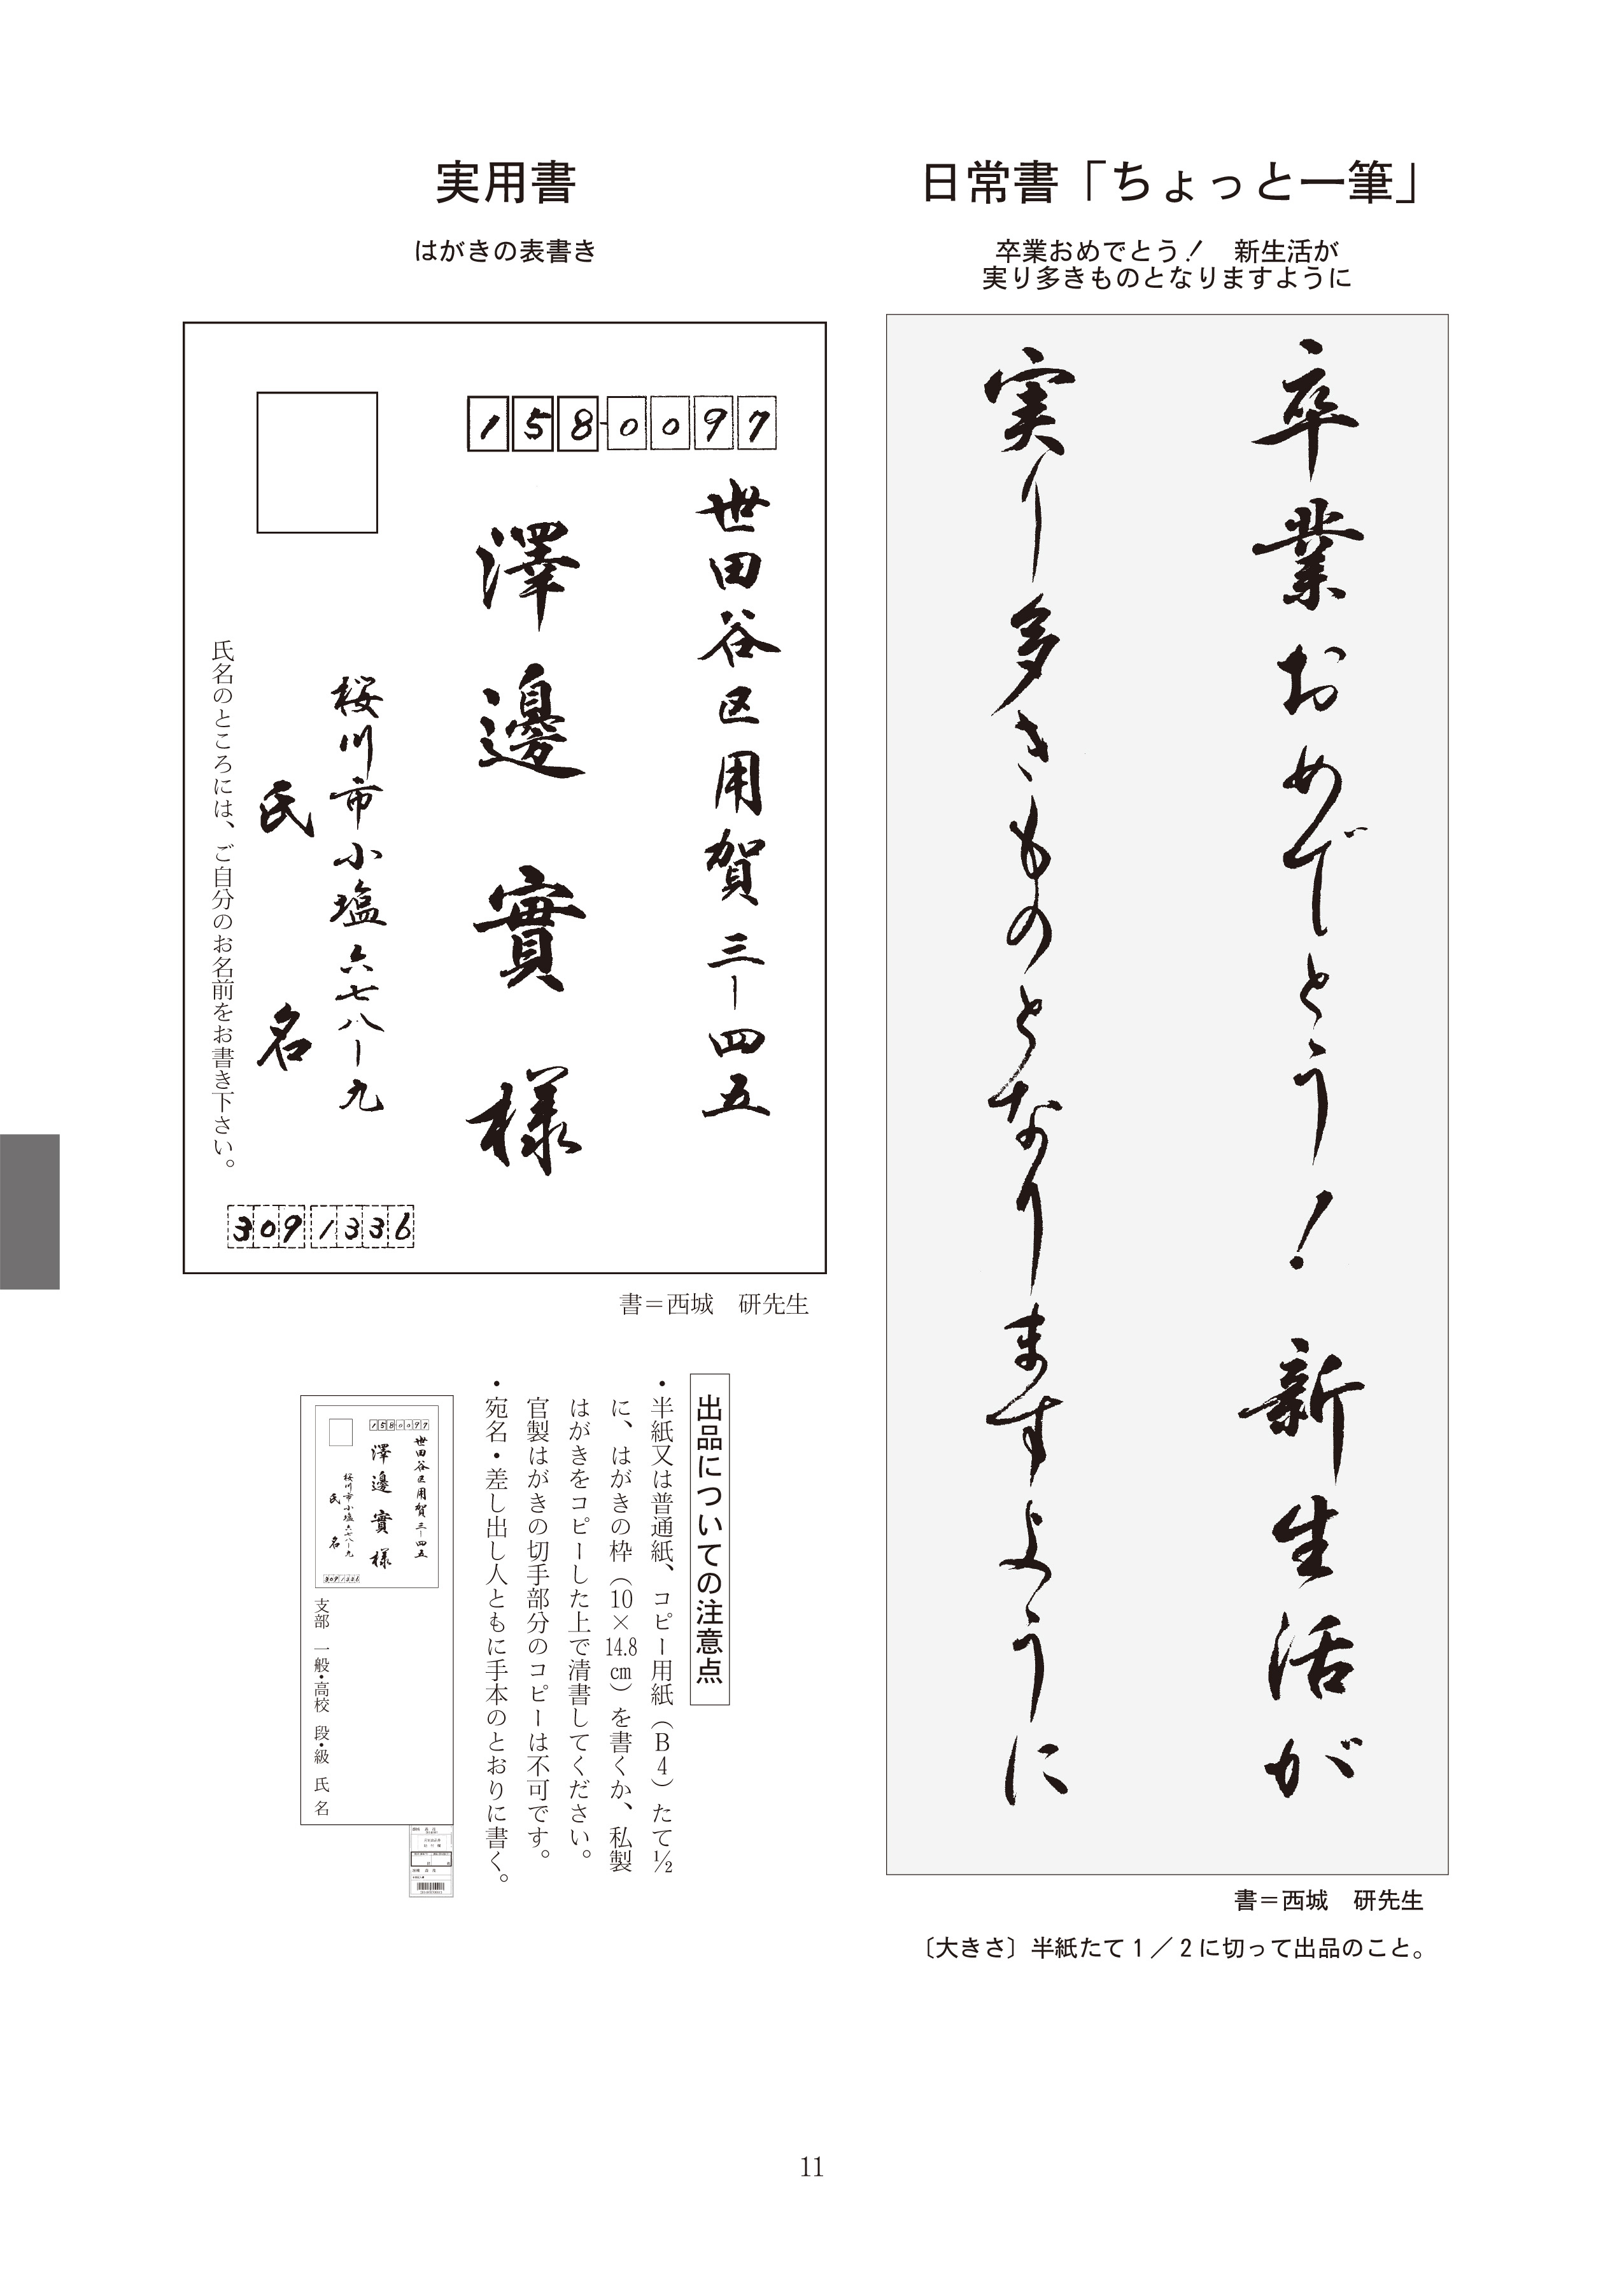 日常書「ちょっと一筆」
卒業おめでとう！　新生活が
実り多きものとなりますように
卒業おめでとう！新生活が
実り多きものとなりますように
書＝西城　研先生
〔大きさ〕半紙たて１／２に切って出品のこと。
実用書
はがきの表書き
158-0097
世田谷区用賀三ー四五
澤邊實様
桜川市小塩六七八ー九
氏名
氏名のところには、ご自分のお名前をお書き下さい。
3091336
書＝西城　研先生
出品についての注意点
・半紙又は普通紙、コピー用紙（B4）たて½
に、はがきの枠（10×14.8cm）を書くか、私製
はがきをコピーした上で清書してください。
官製はがきの切手部分のコピーは不可です。
・宛名・差し出し人ともに手本のとおりに書く。
1580097
世田谷区用賀三ー四五
澤邊實様
桜川市小塩六七八ー九
氏名
3091336
支部　一般・高校　段・級　氏名
11